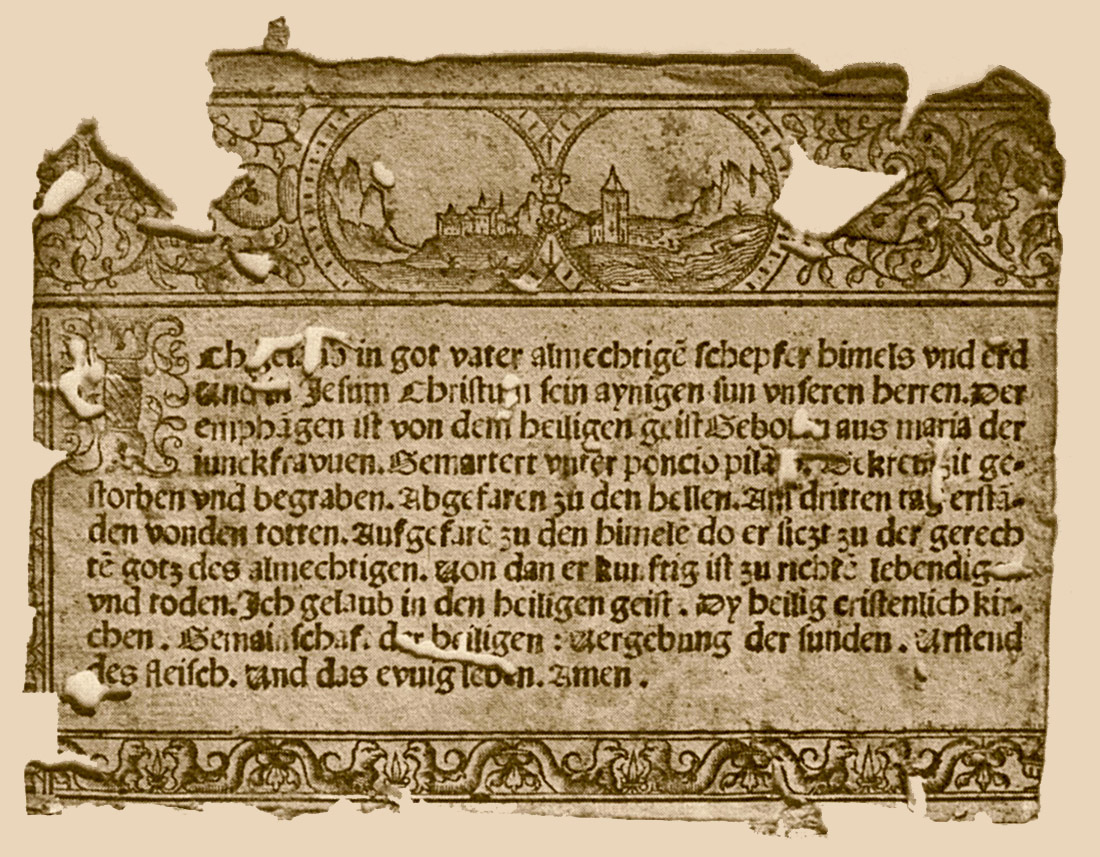 Ich gelaub in got vater almechtigē schepfer himels vnd erd
Vnd in Jesum Christum sein aynigen sun vnseren herren. Der
emphāgen ist von dem heiligen geist Geboren aus maria der
iunckfravuen. Gemartert vnter poncio pila Gekreuzit ge-
storben vnd begraben. Abgefaren zu den hellen. Am dritten tag erstā-
den vonden totten. Aufgefarē zu den himele do er siczt zu der gerech
tē gotz des almechtigen. Von dan er kunftig ist zu richtē lebendig
vnd toden. Ich gelaub in den heiligen geist. Dy heilig cristenlich kir-
chen. Gemainschaf. der heiligen : Vergebung der sunden. Vrstend
des fleisch. Vnd das evuig leben. Amen.